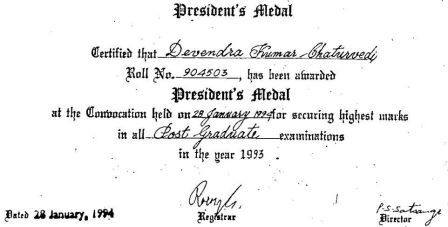 President's Medal
Certified that Devendra Kumar Chaturvedi
Roll No. 904503, has been awarded
President's Medal
at the Convocation held on 28 January 1994 for securing highest marks
in all Post Graduate examinations
in the year 1993
Dated 28 January, 1994
Registrar
P.S. Satsangi
Director